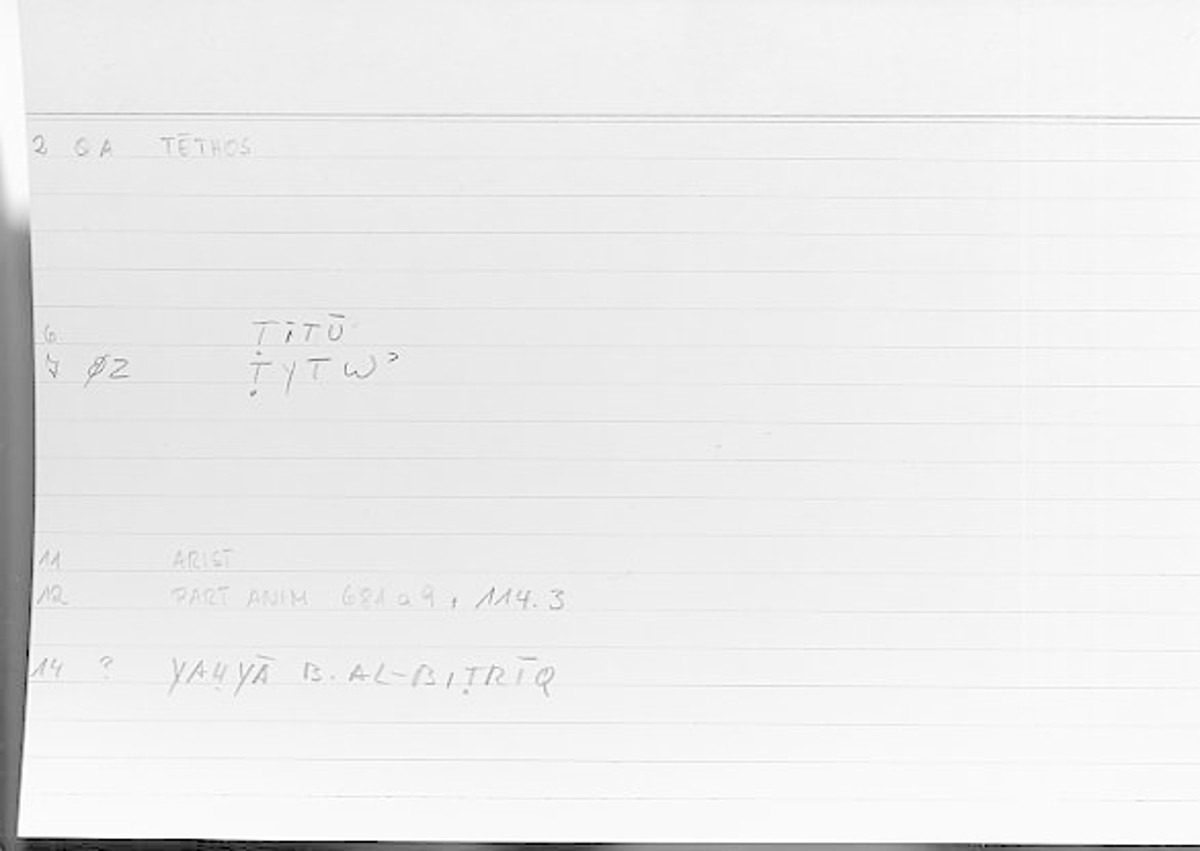 2 GA TĒTHOS
6 ṬĪTŪ
7 ØZ ṬYTWʾ
11 ARIST
12 PART ANIM 681a9, 114.3
14 ? YAḤYĀ B. AL-BIṬRĪQ